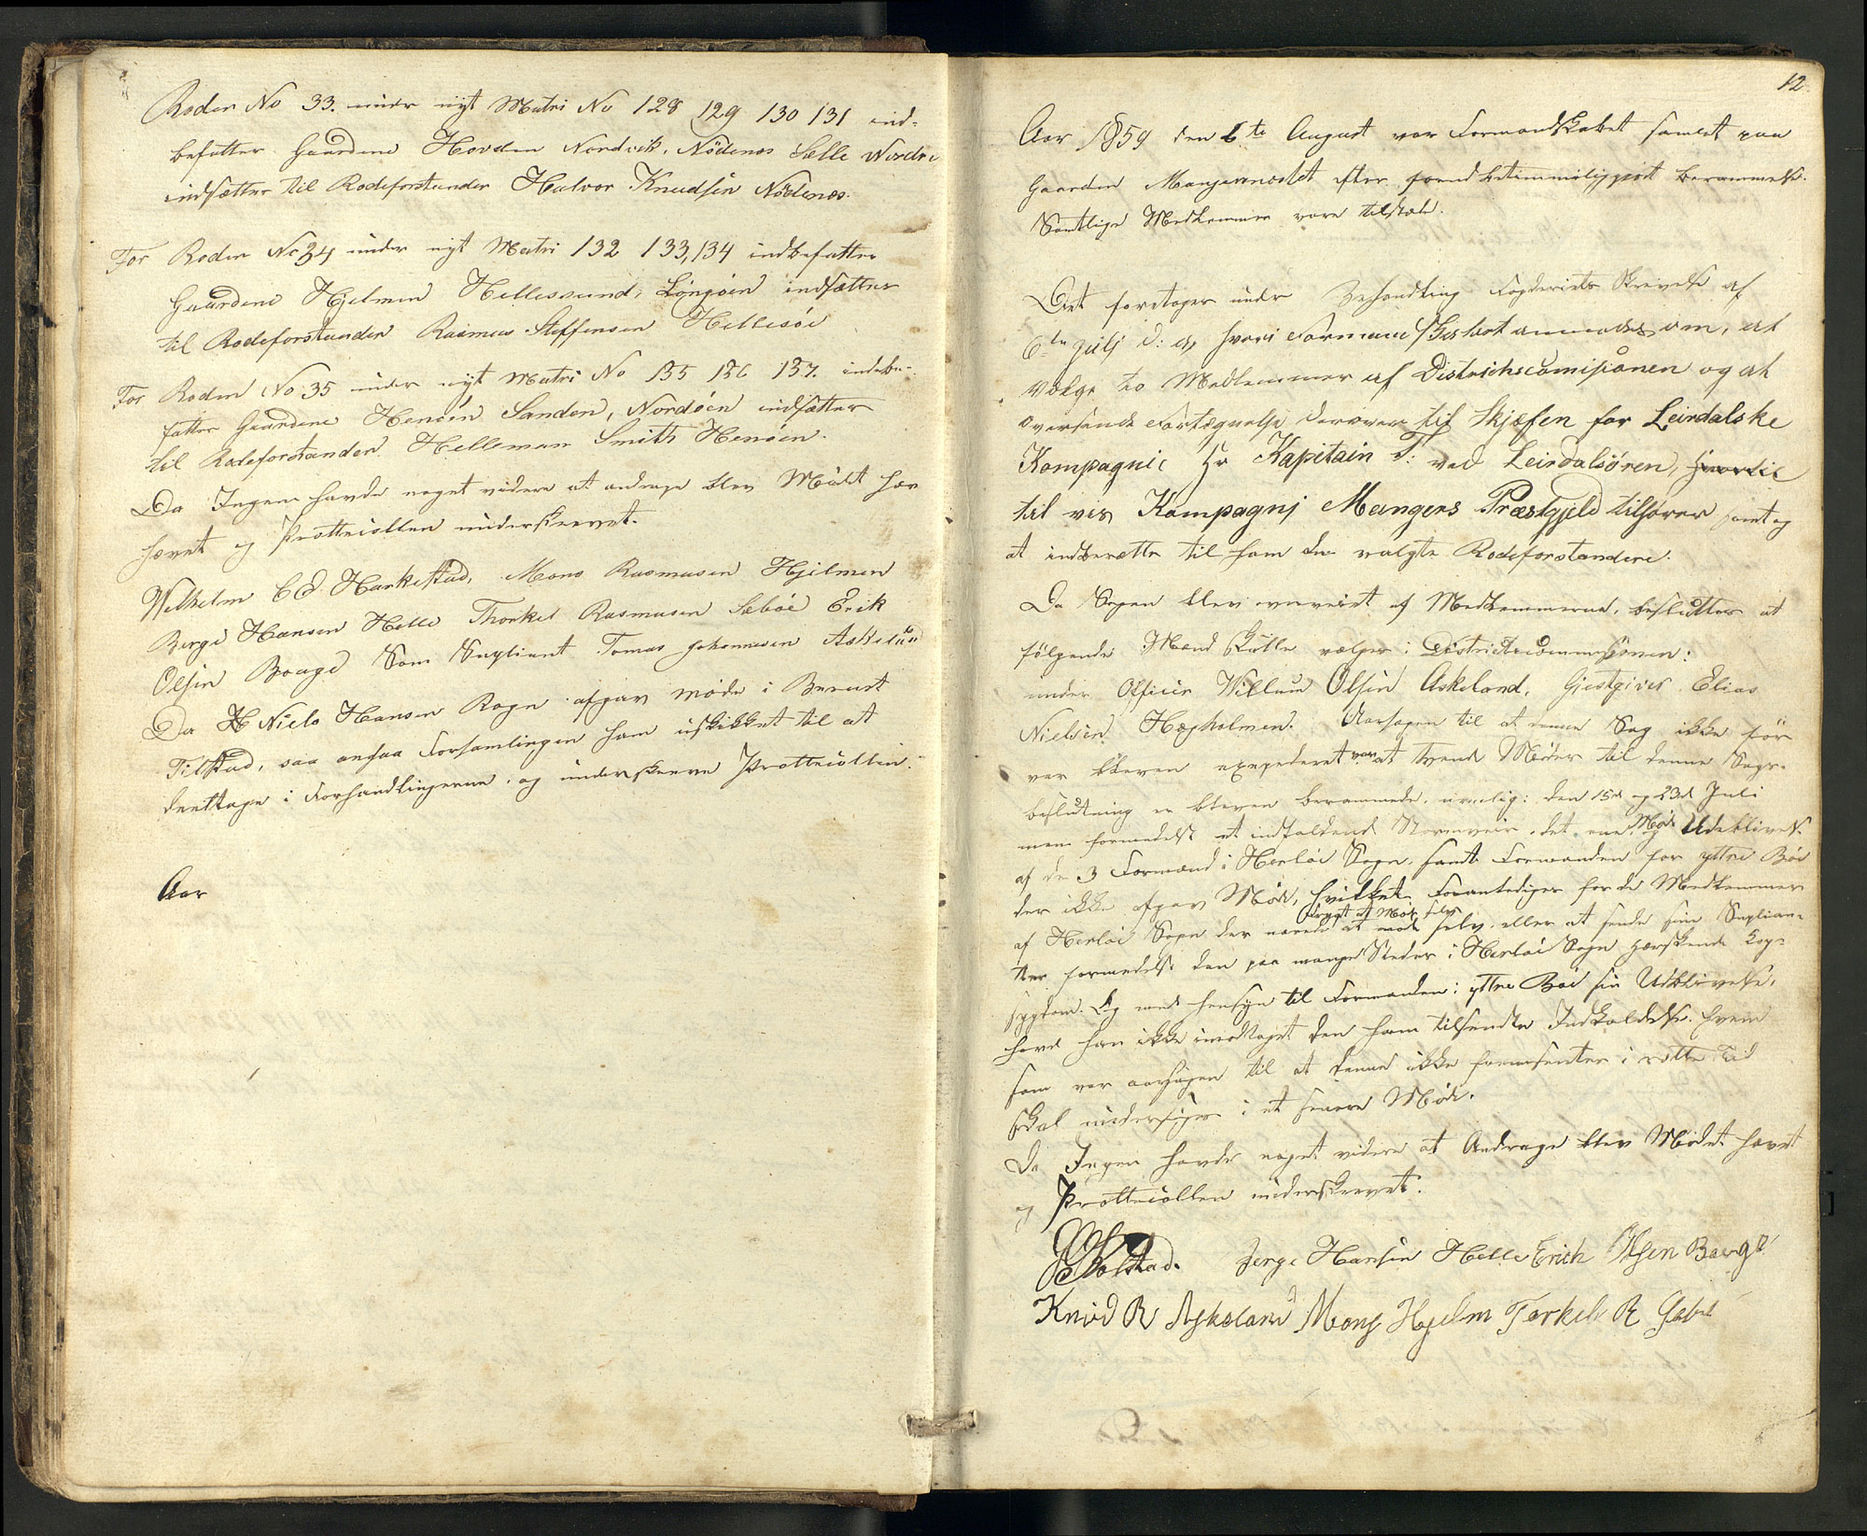 Roden No 33. under nyt Matri No 128 129 130 131 ind-
befatter Gaardene Hovden Nordvik, Nödenes Sælle Nordre
indsætter til Rodeforstander Halvor Knudsen Nödenes.
For Roden No 34 under nyt Matri 132 133, 134 indbefatter
Gaardene Hjelmen Hellesund, Lÿngöen indsætter
til Rodeforstander Rasmus Steffensen Hellesöe
For Roden No 35 under nyt Matri No 135 136 137. indebe-
fatter Gaardene Henöen Sanden, Nordöen indsætter
til Rodeforstander Helleman Smith Henöen.
Da Ingen havde noget videre at andrage blev Mödet hæ
hævet og Prottecollen underskrevet.
Wilhelm C D Harkestad, Mons Rasmusen Hjelmen
Berge Hansen Helle Thorkel Rasmusen Sæböe Erik
Olsen Bouge Som Supliant Tomas Johannesen Askelund
Da H Niels Hansen Rogn afgav möde i Beruset
Tilstad, saa ansaa Forsamlingen ham uskikket til at
deeltage i Forhandlingerne, og underskrevne Prottecollen.
Aar
12.
Aar 1859 den 6te August var Formandskabet samlet paa
Gaarden Mangernæstet efter forud betimmeligt Berammelse.
Samtlige Medlemmer vare tilstæde.
Det foretoges under Behandling Fogderiets Skrivelse af
6te Julj d: A, hvori Formandskabet anmodes om, at
vælge to Medlemmer af Districhscomisionen og at
oversende Fortegnelse derover til Skjefen for Leirdalske
Kompagnie Hr Kapitain T: ved Leirdalsören, hvortil
til ves Kompagnj Mangers Præstgjeld tilhører samt og
at indberette til ham de valgte Rodeforstandere.
Da Sagen blev overveiet af Medlemmerne, besluttes at
fölgende Mænd skulle vælges i Districtscommissjonen:
under Officer Willum Olsen Askeland, Gjestgiver Elias
Nielsen Hægholmen. Aarsagen til at denne Sag ikke för
var bleven expederet var at tvende Möder til denne Sags-
beslutning er bleven berammede, nemlig: den 15de og 23de Juli
men formedelst et indfaldende Stormveir, det ene Möde og Udeblivelse
af de 3 Formænd i Herlöe Sogn, samt Formanden for yttre Böe
der ikke afgav Möde, hvilket Foranlediges for de Medlemmer
af Herlöe Sogn der
frygt at Möde selv
at möde selv, eller at sende sine Suplian-
ter formedelst den paa mange Steder i Herlöe Sogn herskende Kop-
sygdom. Og med hensyn til Formanden i yttre Böe sin Udeblivelse,
havde han ikke modtaget den ham tilsendte Indkaldelse. Hvem
som var aarsagen til at denne ikke fremsendtes i rette Tid
skal undersöges i et senere Möde.
Da Ingen havde noget videre at Andrage blev Mödet hævet
og Prottecollen underskrevet.
Berge Hansen Helle Erich Olsen Bouge
Knud R Askeland Mons Hjelm Torkel R Sæbö